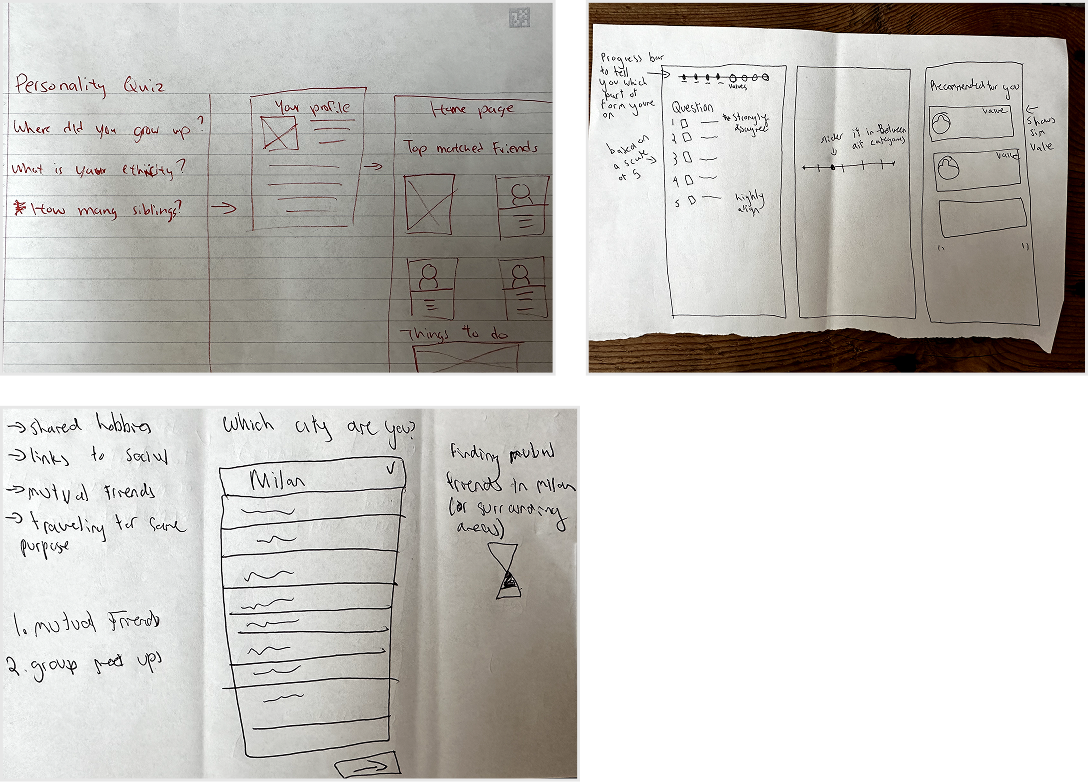 Personality Quiz
Where did you grow up?
What is your ethnicity?
How many siblings?
Your profile
Home page
Top matched friends
Things to do
Progress bar
to tell
you which
part of
form youre
on
based on
a scale
of 5
values
Question
1
strongly
disagree
2
3
4
5
highly
align
slider
in between
categories
Recommended for you
value
value
shows
sim
value
→ shared hobbies
→ links to social
→ mutual friends
→ traveling for same
purpose
1. mutual friends
2. group meet ups
Which city are you?
Milan
Finding mutual
friends in Milan
(or surrounding
areas)